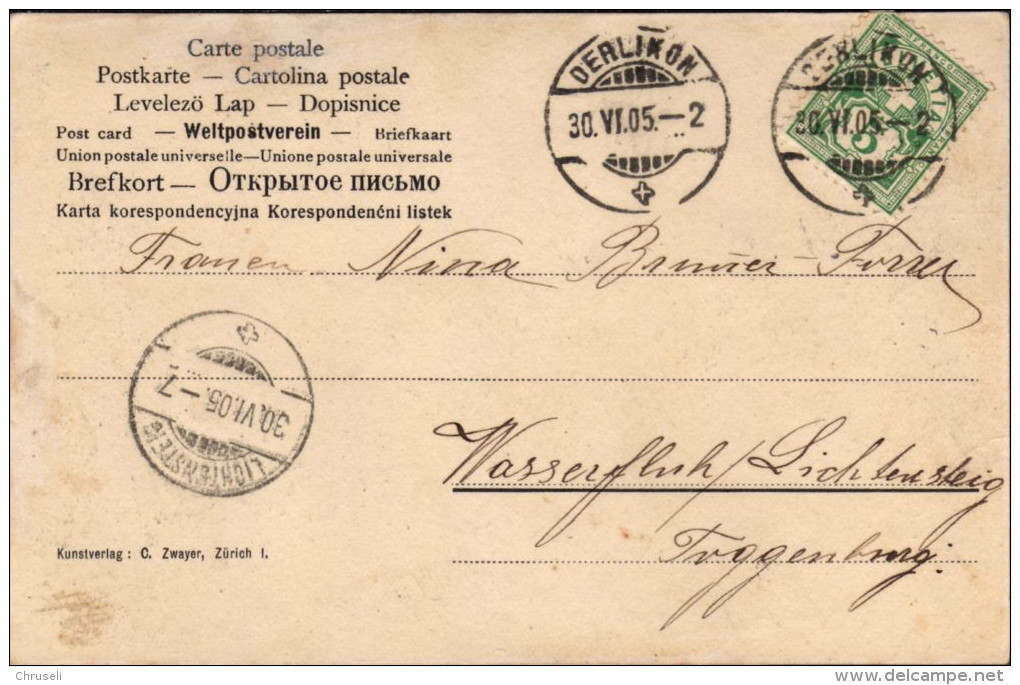 Carte postale
Postkarte — Cartolina postale
Levelezö Lap — Dopisnice
Post card — Weltpostverein — Briefkaart
Union postale universelle—Unione postale universale
Brefkort — Открытое письмо
Karta korespondencyjna Korespondenćni listek
OERLIKON
30.VI.05.—2
OERLIKON
30.VI.05.—2
FRANCO
5
Frauen Nina Brunner-Forrer
30.VI.05.—7
LICHTENSTEIG
Wasserfluh/Lichtensteig
Toggenburg.
Kunstverlag : C. Zwayer, Zürich I.
Chruseli
delcampe.net